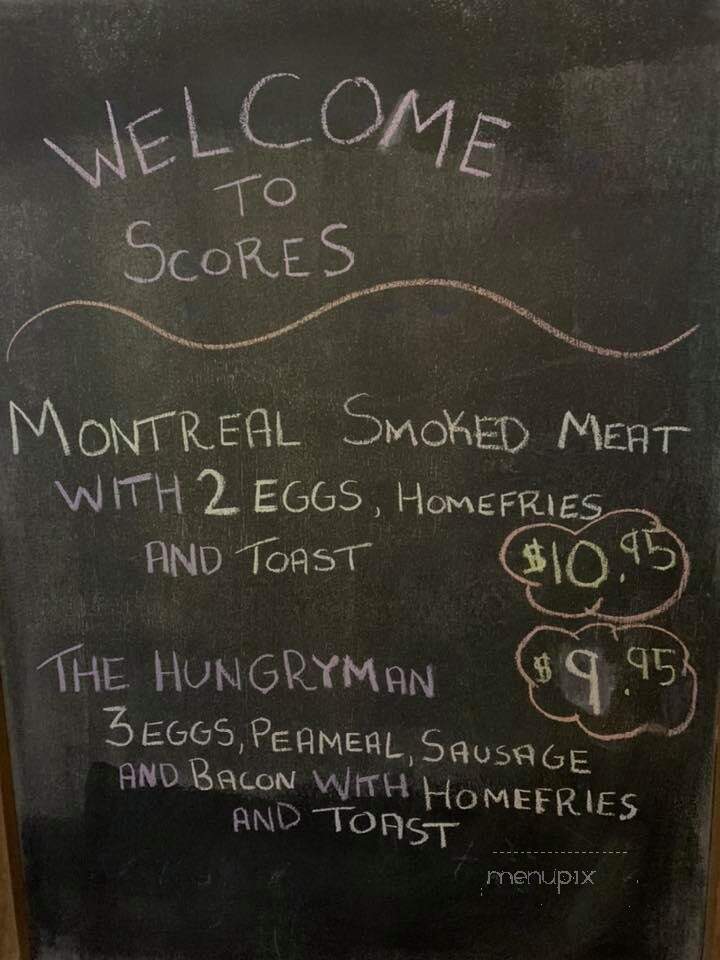 WELCOME
TO
SCORES
MONTREAL SMOKED MEAT
WITH 2 EGGS, HOMEFRIES
AND TOAST
$10.95
THE HUNGRYMAN
$9.95
3 EGGS, PEAMEAL, SAUSAGE
AND BACON WITH HOMEFRIES
AND TOAST
menupix